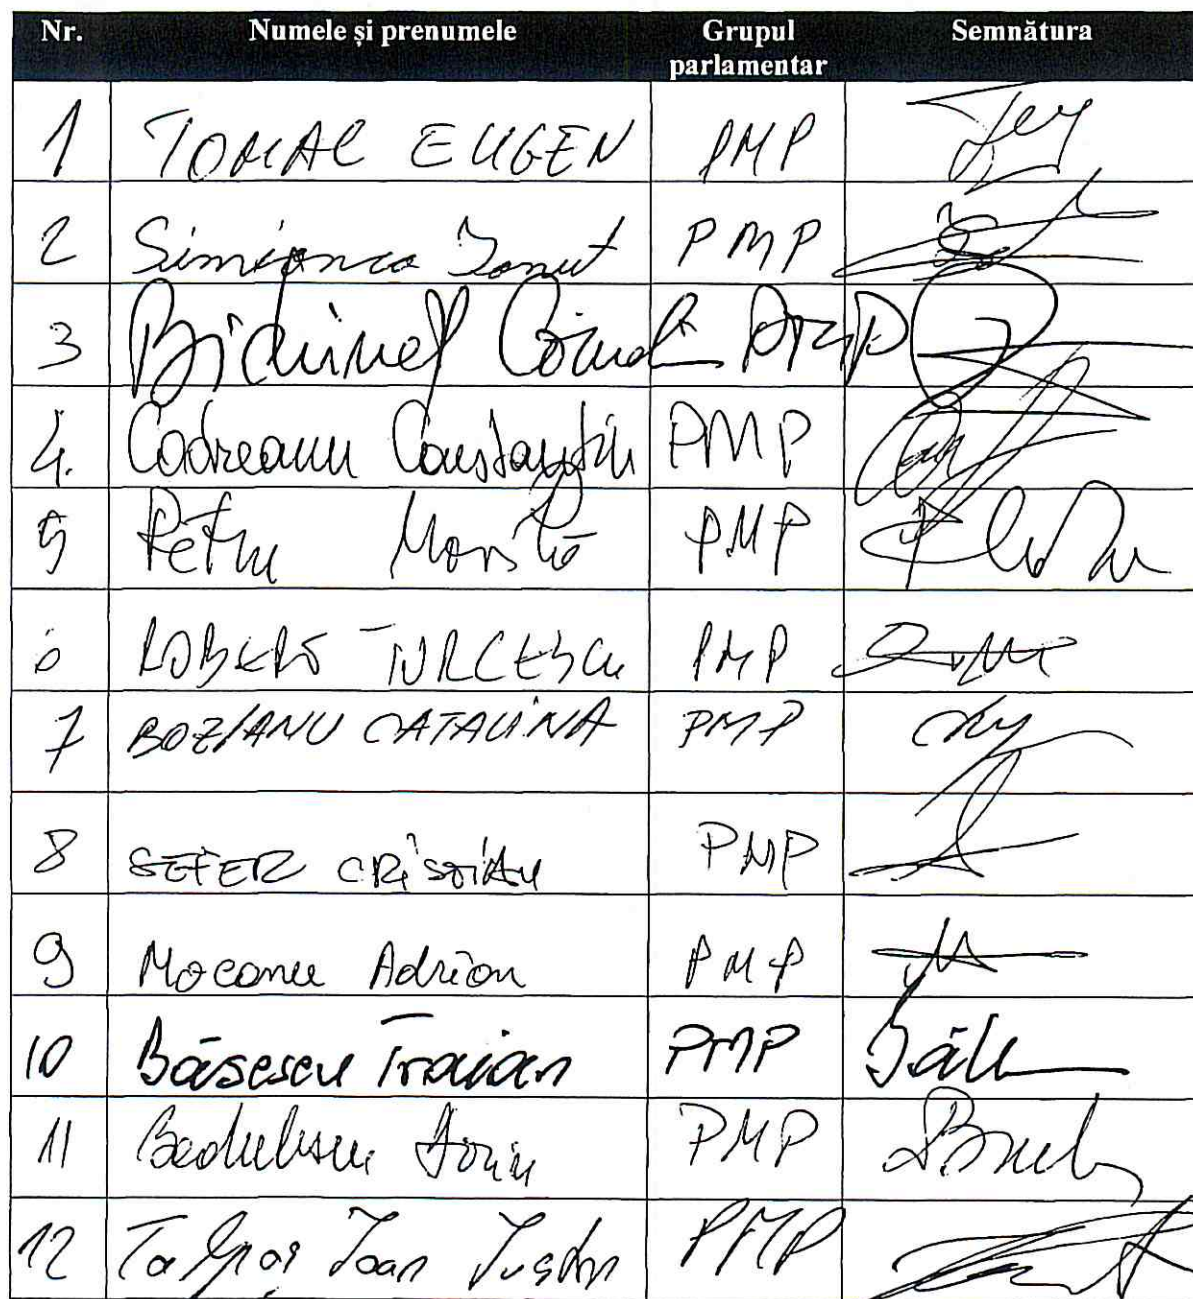 Nr. Numele și prenumele Grupul parlamentar Semnătura
1 TOMAC EUGEN PMP
2 Simionca Ionut PMP
3 Bichinet Corneliu PMP
4. Codreanu Constantin PMP
5 Petru Movilă PMP
6 ROBERT TURCESCU PMP
7 BOZIANU CATALINA PMP
8 SEFER CRISTIAN PMP
9 Mocanu Adrian PMP
10 Băsescu Traian PMP
11 Badulescu Dorin PMP
12 Talpos Ioan Iustin PMP